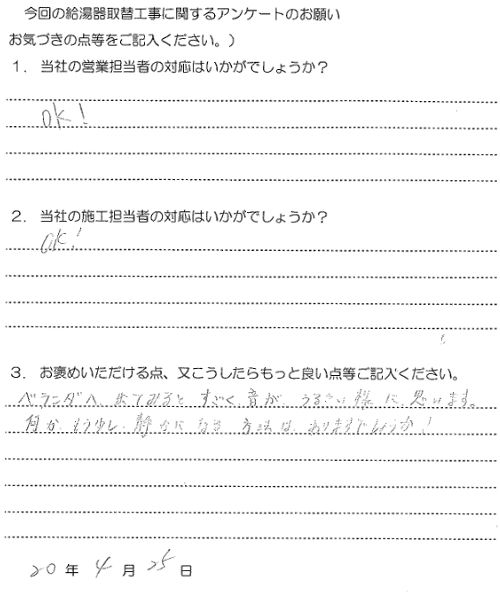 今回の給湯器取替工事に関するアンケートのお願い
お気づきの点等をご記入ください。)
1. 当社の営業担当者の対応はいかがでしょうか？
OK!
2. 当社の施工担当者の対応はいかがでしょうか？
OK!
3. お褒めいただける点、又こうしたらもっと良い点等ご記入ください。
ベランダへ、出てみると すごく 音が、うるさい様に、思います。
何か、もう少し、静かに なる 方法は、ありますでしょうか!
20年 4月 25日